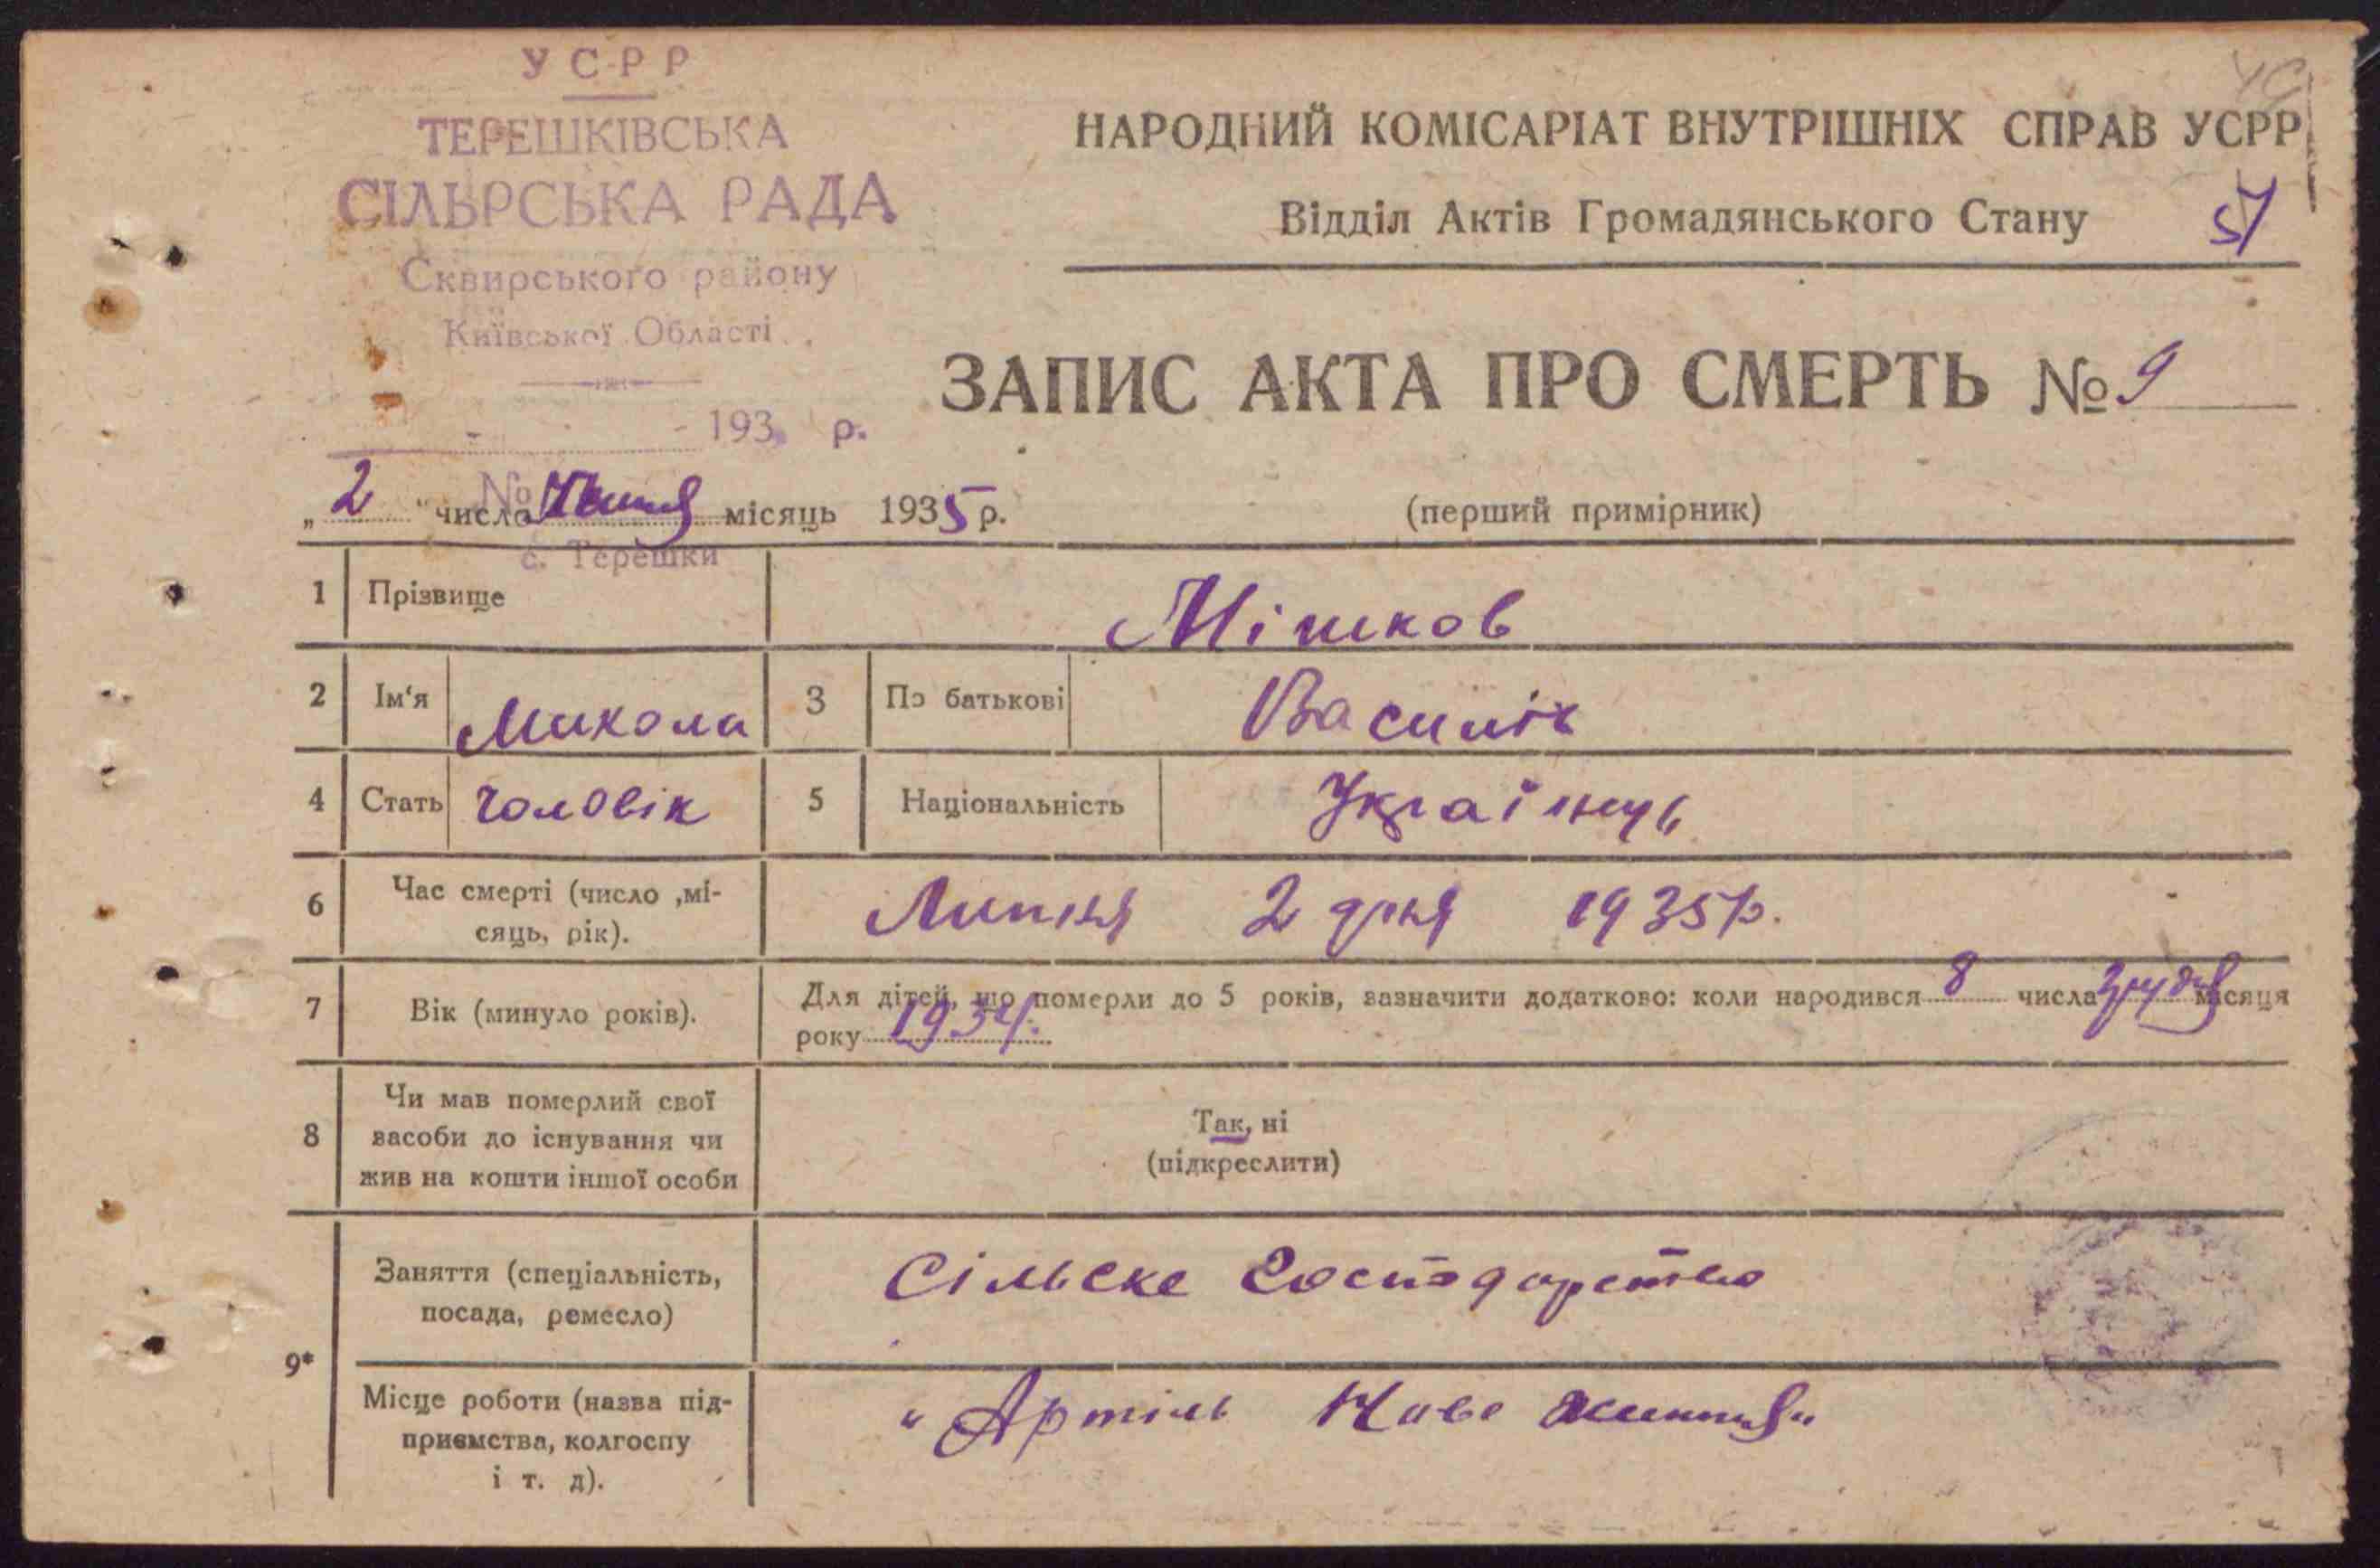 УСРР
ТЕРЕШКІВСЬКА
СІЛЬРСЬКА РАДА
Сквирського району
Київської Області
193 р.
№
с. Терешки
НАРОДНИЙ КОМІСАРІАТ ВНУТРІШНІХ СПРАВ УСРР
Відділ Актів Громадянського Стану
57
ЗАПИС АКТА ПРО СМЕРТЬ № 9
„2“ число Липня місяць 1935 р.
(перший примірник)
1 Прізвище Мішков
2 Ім'я Микола 3 По батькові Василів
4 Стать Чоловік 5 Національність Українець
6 Час смерті (число ,мі-
сяць, рік). Липня 2 дня 1935р.
7 Вік (минуло років). Для дітей, що померли до 5 років, зазначити додатково: коли народився 8 числа Грудня місяця
року 1934.
8 Чи мав померлий свої
засоби до існування чи
жив на кошти іншої особи
Так, ні
(підкреслити)
9*
Заняття (спеціальність,
посада, ремесло) Сільске Господарство
Місце роботи (назва під-
приємства, колгоспу
і т. д). „Артіль Нове життя"